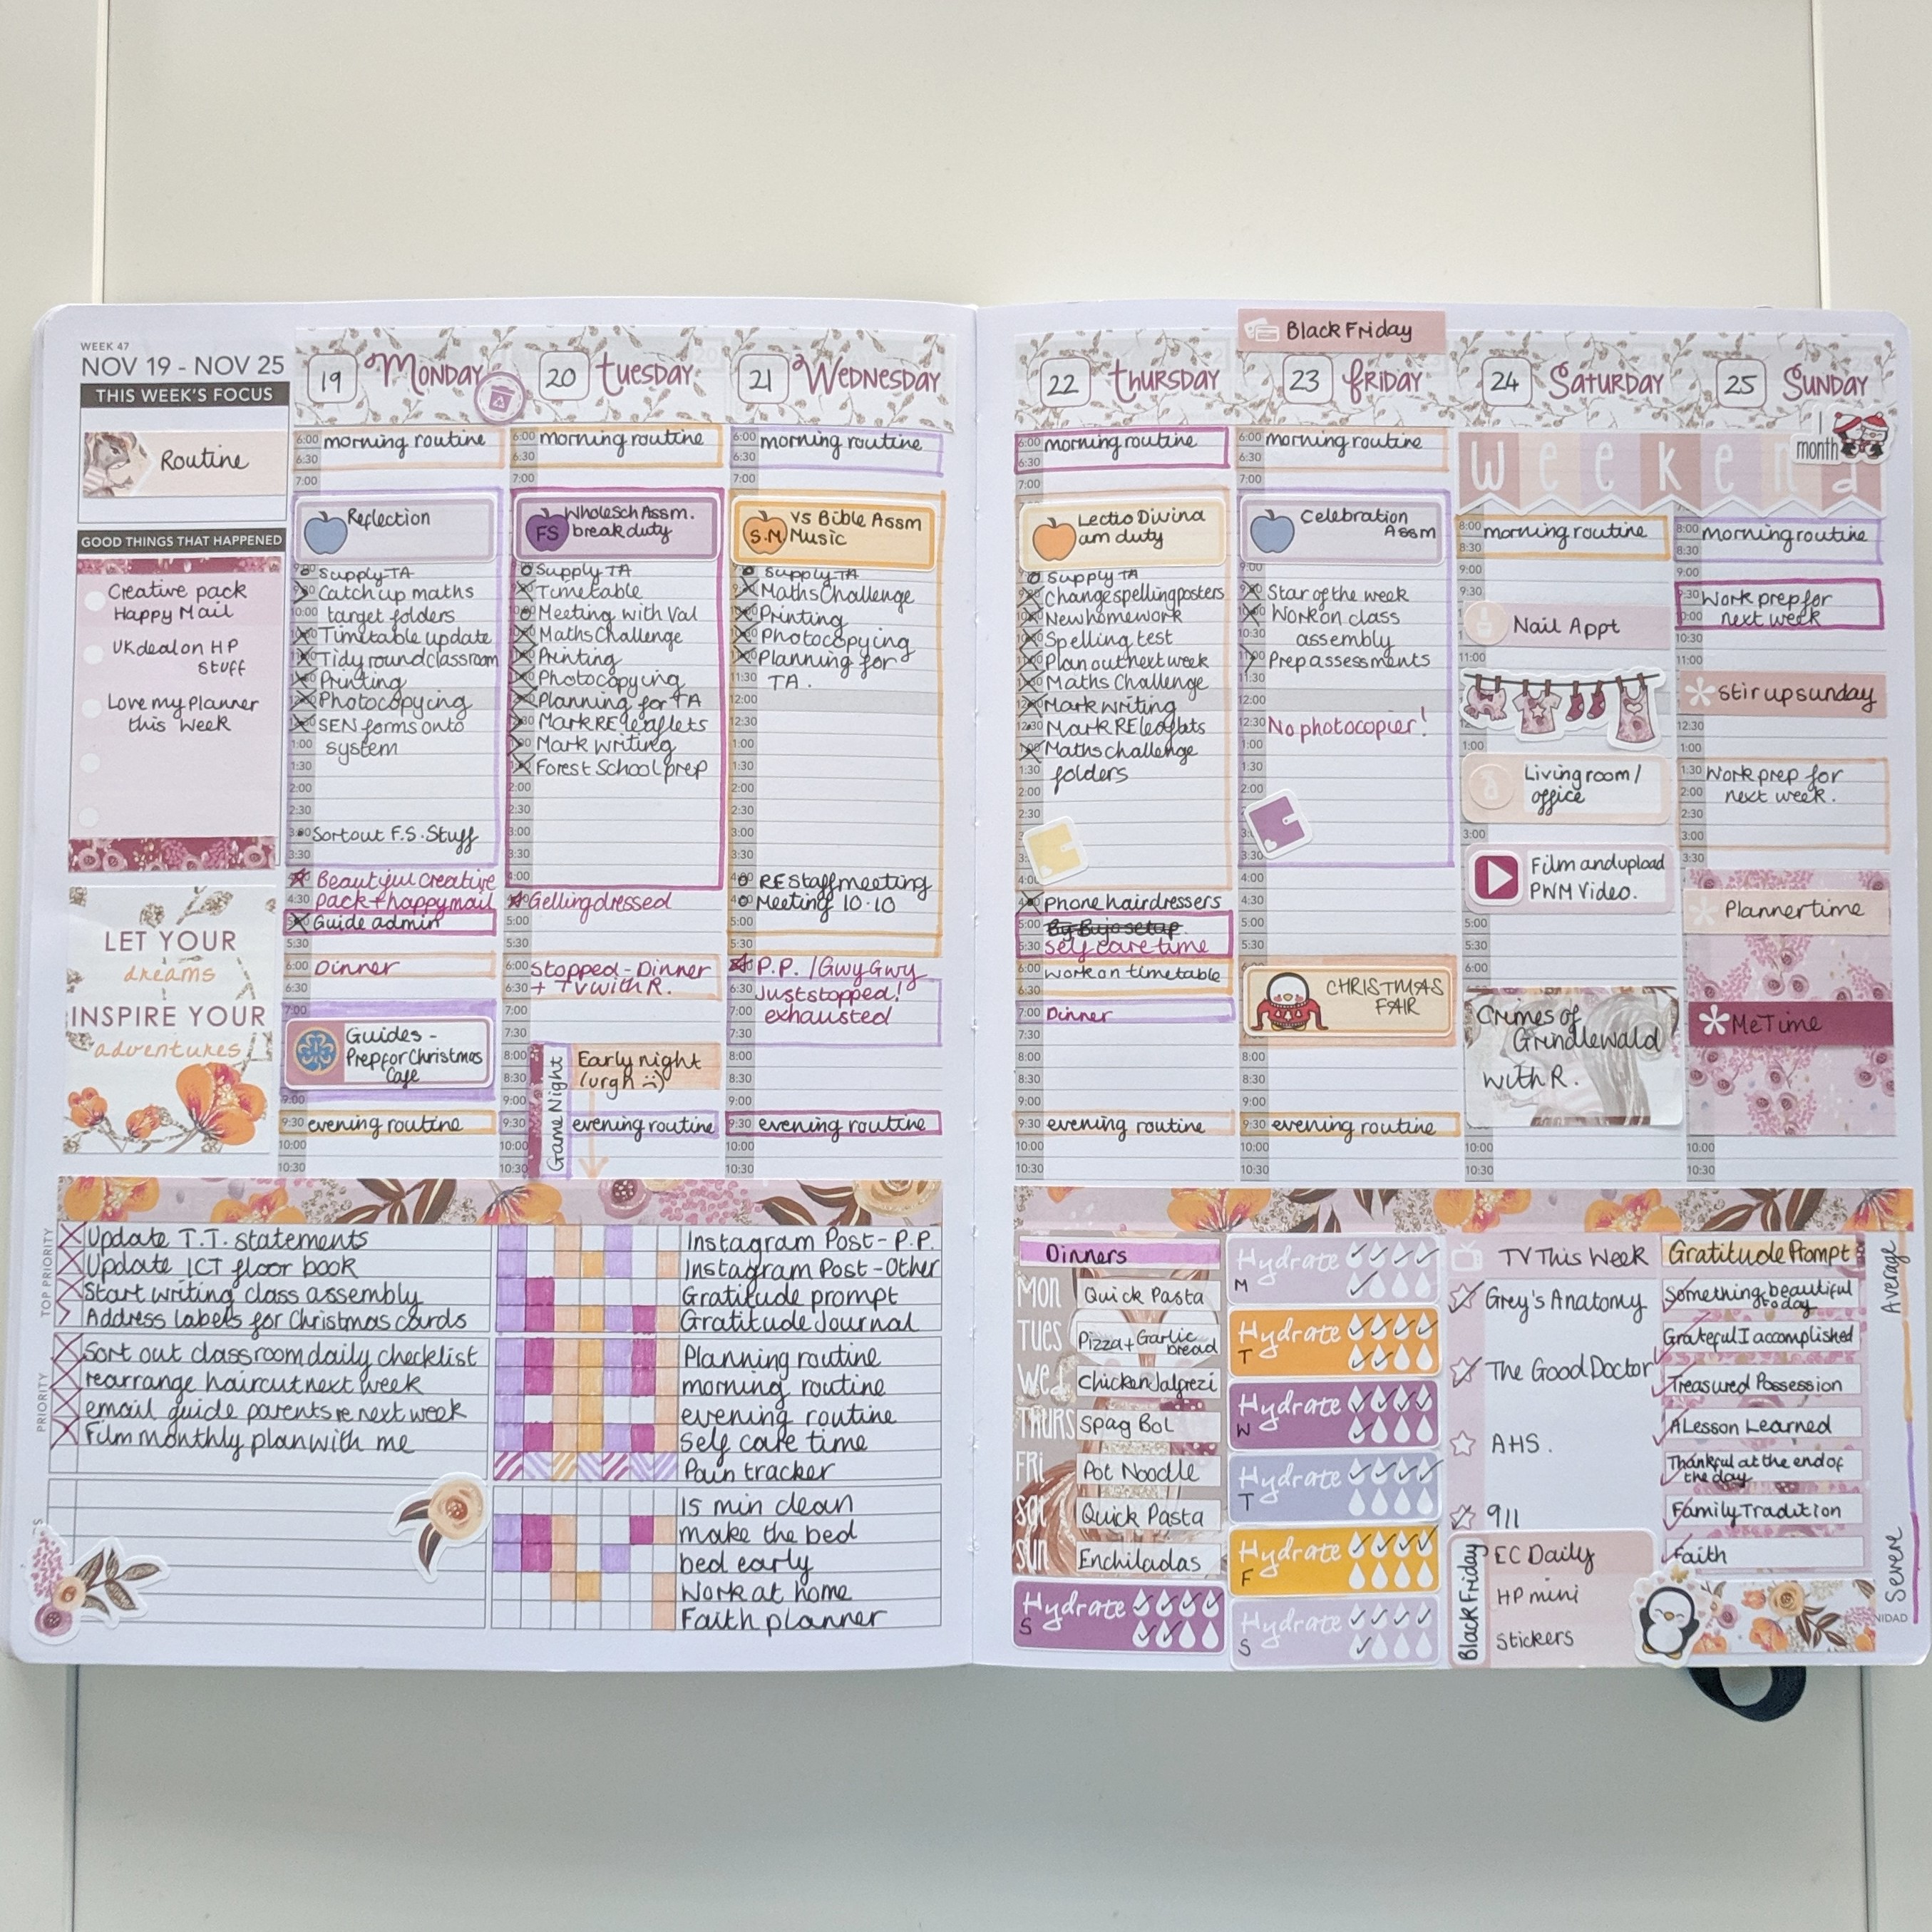 WEEK 47
NOV 19 - NOV 25
THIS WEEK'S FOCUS
Routine
GOOD THINGS THAT HAPPENED
Creative pack
Happy Mail
UK deal on HP
stuff
Love my Planner
this week
LET YOUR
dreams
INSPIRE YOUR
adventures
19 Monday
6:00 morning routine
6:30
7:00
Reflection
Supply TA
Catch up maths
10:00 target folders
Timetable update
Tidy round classroom
Printing
Photocopying
SEN forms onto
1:00 system
1:30
2:00
2:30
Sort out F.S. Stuff
3:30
Beautiful creative
4:30 pack + happy mail
Guide admin
5:30
6:00 Dinner
6:30
7:00
Guides -
Prep for Christmas
Cafe
9:00
9:30 evening routine
10:00
10:30
20 Tuesday
6:00 morning routine
6:30
7:00
FS
Wholesch Assm.
break duty
Supply TA
Timetable
Meeting with Val
Maths Challenge
Printing
Photocopying
Planning for TA
Mark RE leaflets
Mark writing
Forest School prep
2:00
2:30
3:00
3:30
4:00
Gelling dressed
5:00
5:30
6:00 Stopped - Dinner
6:30 + TV with R.
7:00
7:30
8:00
8:30
9:00
9:30
10:00
10:30
Game Night
Early night
(urgh :()
evening routine
21 Wednesday
6:00 morning routine
6:30
7:00
S.M
VS Bible Assm
Music
Supply TA
Maths Challenge
Printing
Photocopying
Planning for
11:30 TA.
12:00
12:30
1:00
1:30
2:00
2:30
3:00
3:30
RE staff meeting
Meeting 10.10
5:00
5:30
P.P. / Gwy Gwy
6:30 Just stopped!
7:00 exhausted
7:30
8:00
8:30
9:00
9:30 evening routine
10:00
10:30
22 Thursday
6:00 morning routine
6:30
7:00
Lectio Divina
am duty
Supply TA
Change spelling posters
New homework
Spelling test
Plan out next week
Maths Challenge
Mark writing
12:30 Mark RE leaflets
Maths challenge
1:30 folders
2:00
2:30
4:00
Phone hairdressers
5:00 Bujo setup
5:30 self care time
6:00 work on timetable
6:30
7:00 Dinner
7:30
8:00
8:30
9:00
9:30 evening routine
10:00
10:30
Black Friday
23 Friday
6:00 morning routine
6:30
7:00
Celebration
Assm
9:00
Star of the week
Work on class
10:30 assembly
Prep assessments
11:30
12:00
12:30 No photocopier!
1:00
1:30
2:00
3:30
4:00
4:30
5:00
5:30
CHRISTMAS
FAIR
8:00
8:30
9:00
9:30 evening routine
10:00
10:30
24 Saturday
25 Sunday
1
month
Weekend
8:00 morning routine
8:30
9:00
9:30
Nail Appt
11:00
1:00
Living room /
office
3:00
Film and upload
PWM Video.
Crimes of
Grindlewald
with R.
10:00
10:30
8:00 morning routine
8:30
9:00
9:30 Work prep for
next week
10:30
11:00
stir up sunday
12:30
1:00
1:30 Work prep for
2:00 next week.
2:30
3:00
3:30
Planner time
Me Time
10:00
10:30
TOP PRIORITY
Update T.T. statements
Update ICT floor book
Start writing class assembly
Address labels for Christmas cards
PRIORITY
Sort out classroom daily checklist
rearrange haircut next week
email guide parents re next week
Film monthly plan with me
Instagram Post - P.P.
Instagram Post - Other
Gratitude prompt
Gratitude Journal
Planning routine
morning routine
evening routine
Self care time
Pain tracker
15 min clean
make the bed
bed early
Work at home
Faith planner
Dinners
MON Quick Pasta
TUES Pizza + Garlic
bread
Wed Chicken Jalfrezi
THURS Spag Bol
FRI Pot Noodle
Sat Quick Pasta
Sun Enchiladas
Hydrate
S
Hydrate
M
Hydrate
T
Hydrate
W
Hydrate
T
Hydrate
F
Hydrate
S
TV This Week
Grey's Anatomy
The Good Doctor
AHS.
911
Black Friday
EC Daily
HP mini
Stickers
Gratitude Prompt
Something beautiful
today
Grateful I accomplished
Treasured Possession
A Lesson Learned
Thankful at the end of
the day
Family Tradition
Faith
Average
Severe
NIDAD